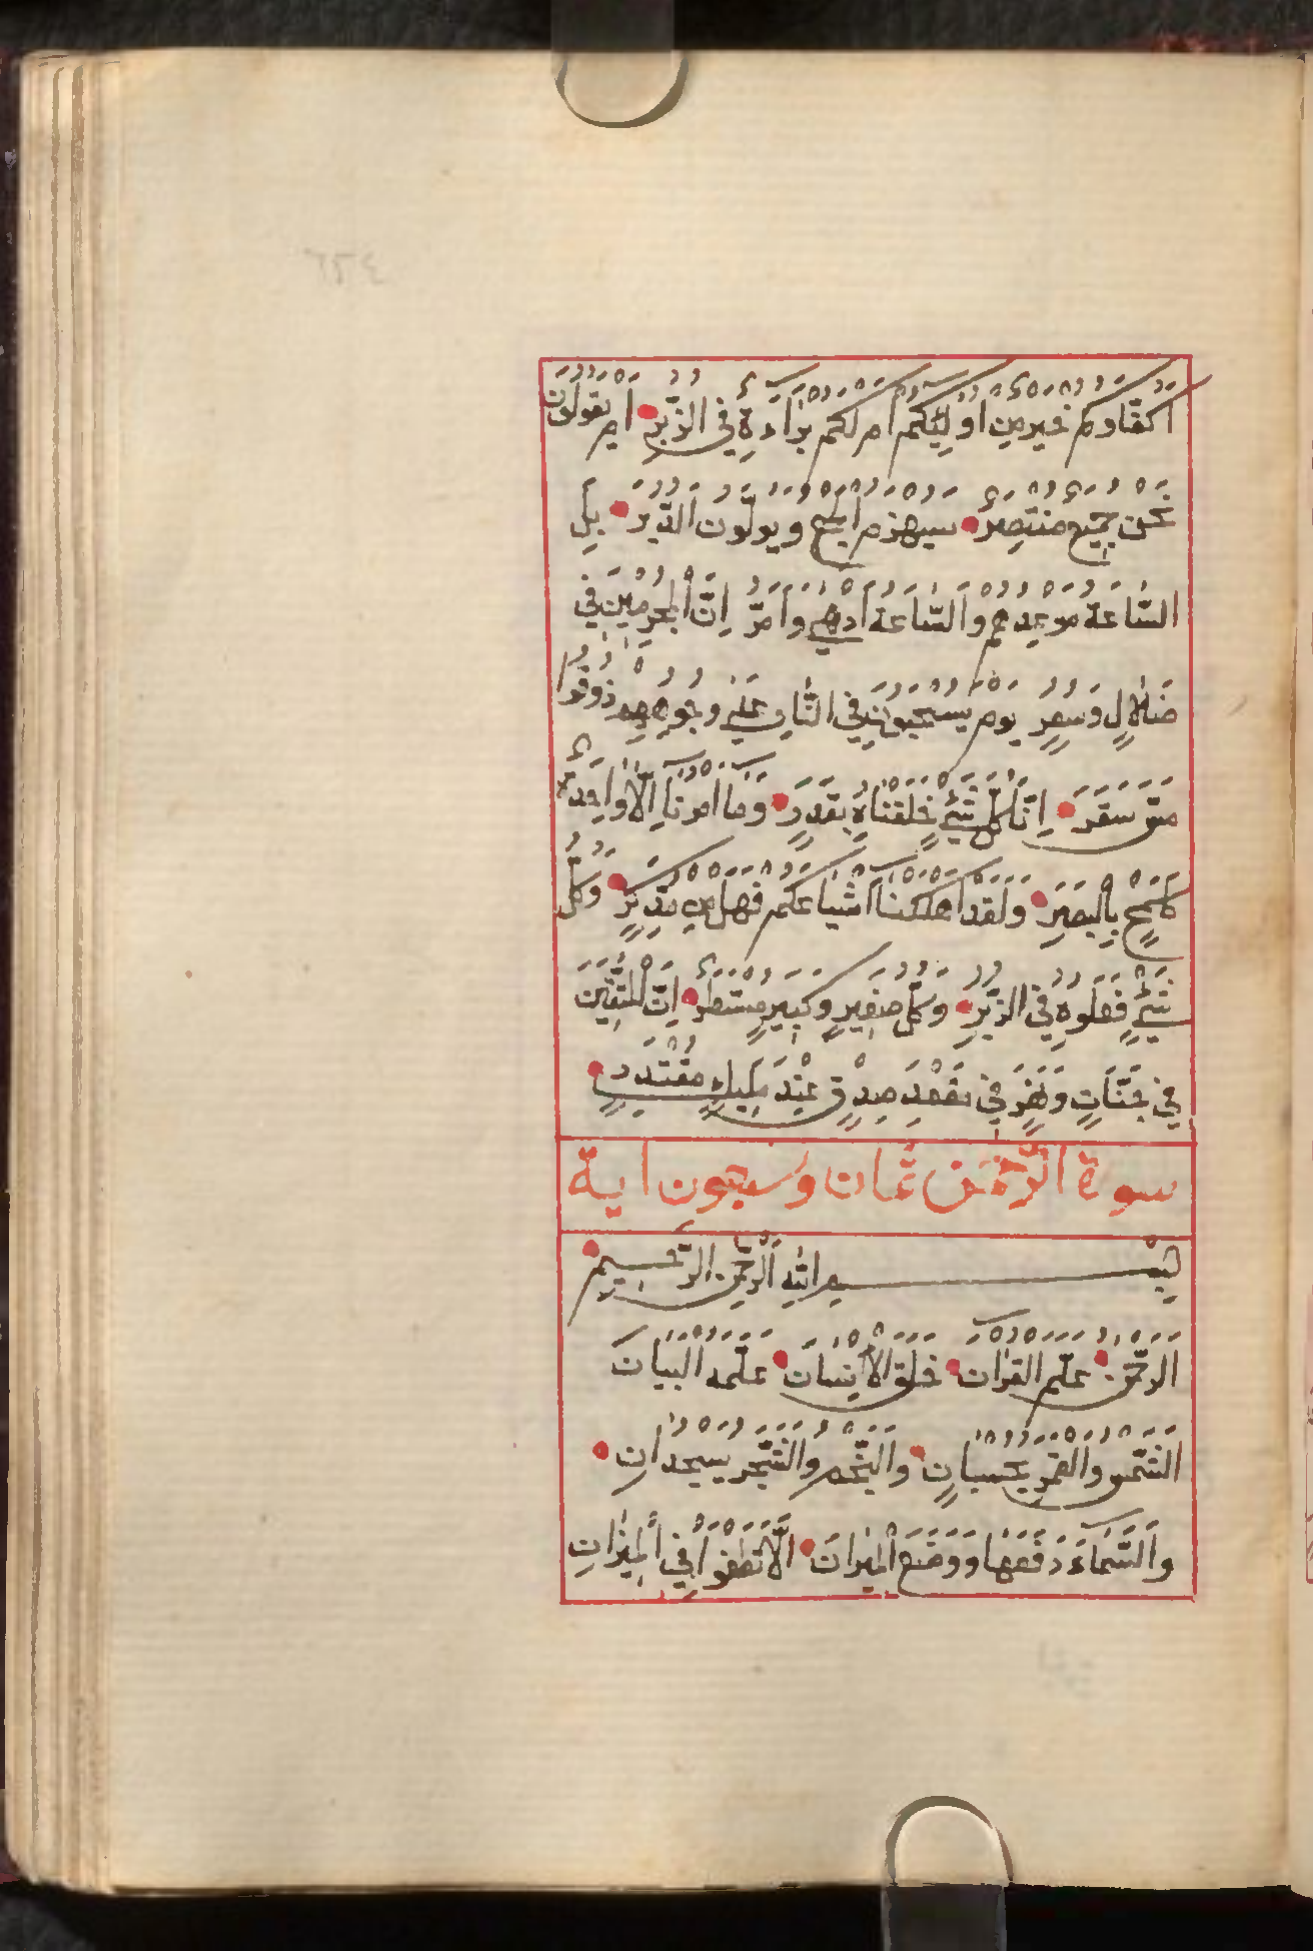 اَكُفَّارُكُمْ خَيْرٌ مِنْ اُولَئِكُمْ اَمْ لَكُمْ بَرَآءَةٌ فِي الزُّبُرِ اَمْ يَقُولُونَ
نَحْنُ جَمِيعٌ مُنْتَصِرٌ سَيُهْزَمُ الْجَمْعُ وَيُوَلُّونَ الدُّبُرَ بَلِ
السَّاعَةُ مَوْعِدُهُمْ وَالسَّاعَةُ اَدْهَى وَاَمَرُّ اِنَّ الْمُجْرِمِينَ فِي
ضَلَالٍ وَسُعُرٍ يَوْمَ يُسْحَبُونَ فِي النَّارِ عَلَى وُجُوهِهِمْ ذُوقُوا
مَسَّ سَقَرَ اِنَّا كُلَّ شَيْءٍ خَلَقْنَاهُ بِقَدَرٍ وَمَا اَمْرُنَا اِلَّا وَاحِدَةٌ
كَلَمْحٍ بِالْبَصَرِ وَلَقَدْ اَهْلَكْنَا اَشْيَاعَكُمْ فَهَلْ مِنْ مُدَّكِرٍ وَكُلُّ
شَيْءٍ فَعَلُوهُ فِي الزُّبُرِ وَكُلُّ صَغِيرٍ وَكَبِيرٍ مُسْتَطَرٌ اِنَّ الْمُتَّقِينَ
فِي جَنَّاتٍ وَنَهَرٍ فِي مَقْعَدِ صِدْقٍ عِنْدَ مَلِيكٍ مُقْتَدِرٍ
سورة الرَّحْمَن ثمان وسبعون اية
بِسْمِ اللّٰهِ الرَّحْمٰنِ الرَّحِيمِ
الرَّحْمٰنُ عَلَّمَ الْقُرْاٰنَ خَلَقَ الْاِنْسَانَ عَلَّمَهُ الْبَيَانَ
الشَّمْسُ وَالْقَمَرُ بِحُسْبَانٍ وَالنَّجْمُ وَالشَّجَرُ يَسْجُدَانِ
وَالسَّمَاءَ رَفَعَهَا وَوَضَعَ الْمِيزَانَ اَلَّا تَطْغَوْا فِي الْمِيزَانِ